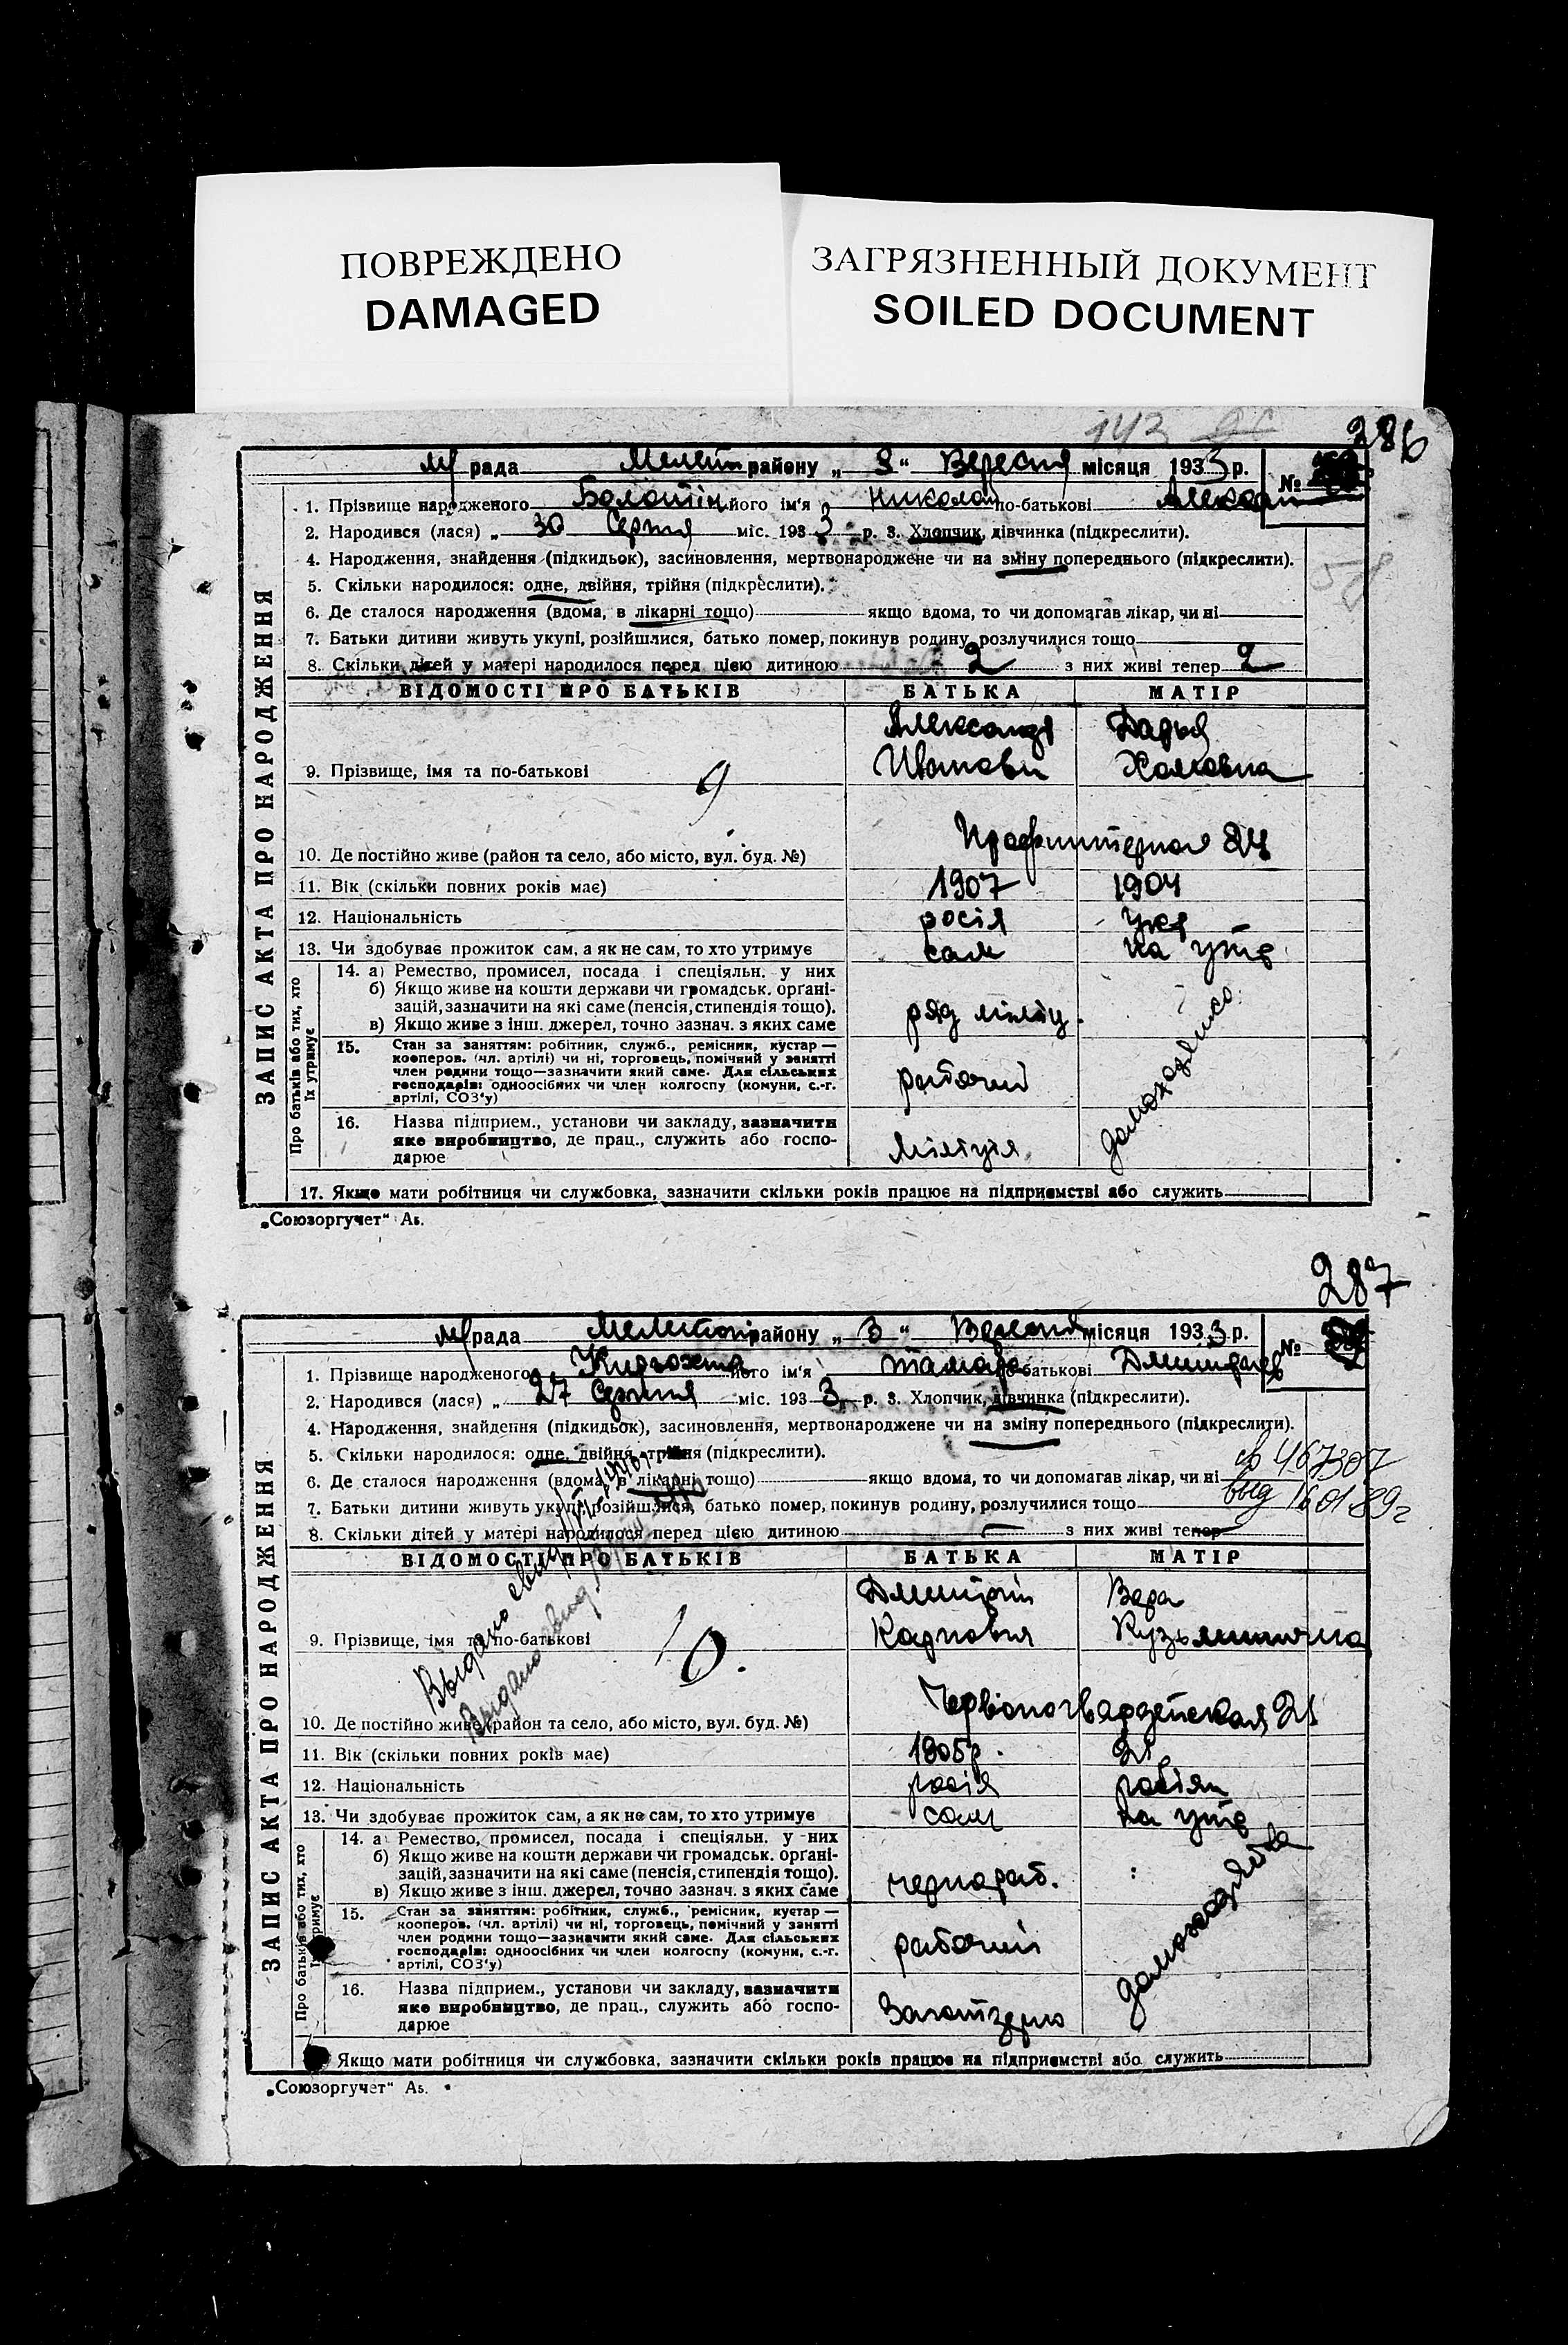 ПОВРЕЖДЕНО
DAMAGED
ЗАГРЯЗНЕННЫЙ ДОКУМЕНТ
SOILED DOCUMENT
143
286
ЗАПИС АКТА ПРО НАРОДЖЕННЯ
м рада Мелит району „ 3 “ Вересня місяця 1933 р. №
1. Прізвище народженого Болотін його ім‘я Николай по-батькові Алексан
2. Народився (лася) „ 30 Серпня міс. 1933 р. 3. Хлопчик, дівчинка (підкреслити).
4. Народження, знайдення (підкидьок), засиновлення, мертвонароджене чи на зміну попереднього (підкреслити).
5. Скільки народилося: одне, двійня, трійня (підкреслити).
6. Де сталося народження (вдома, в лікарні тощо) якщо вдома, то чи допомагав лікар, чи ні
58
7. Батьки дитини живуть укупі, розійшлися, батько помер, покинув родину, розлучилися тощо
8. Скільки дітей у матері народилося перед цією дитиною 2 з них живі тепер 2
ВІДОМОСТІ ПРО БАТЬКІВ БАТЬКА МАТІР
Александр Дарья
9. Прізвище, імя та по-батькові 9 Иванови Хомовна
10. Де постійно живе (район та село, або місто, вул. буд. №) Профинтерна 24
11. Вік (скільки повних років має) 1907 1904
12. Національність росія укр
13. Чи здобуває прожиток сам, а як не сам, то хто утримує сам на утр
Про батьків або тих, хто їх утримує
14. а) Ремество, промисел, посада і спеціяльн. у них
б) Якщо живе на кошти держави чи громадськ. орґані-
зацій, зазначити на які саме (пенсія, стипендія тощо).
в) Якщо живе з інш. джерел, точно зазнач. з яких саме
ряд міліц.
домохазяйка
15. Стан за заняттям: робітник, служб., ремісник, кустар —
кооперов. (чл. артілі) чи ні, торговець, помічний у занятті
член родини тощо—зазначити який саме. Для сільських
господарів: одноосібних чи член колгоспу (комуни, с.-г.
артілі, СОЗ‘у)
рабочий
16. Назва підприєм., установи чи закладу, зазначити
яке виробництво, де прац., служить або госпо-
дарює
Міліція
17. Якщо мати робітниця чи службовка, зазначити скільки років працює на підприємстві або служить
„Союзоргучет“ А5.
287
ЗАПИС АКТА ПРО НАРОДЖЕННЯ
м рада Мелитоп району „ 3 “ Вересня місяця 1933 р. №
1. Прізвище народженого його ім‘я Тамара по-батькові
2. Народився (лася) „ 27 Серпня міс. 1933 р. 3. Хлопчик, дівчинка (підкреслити).
4. Народження, знайдення (підкидьок), засиновлення, мертвонароджене чи на зміну попереднього (підкреслити).
5. Скільки народилося: одне, двійня, трійня (підкреслити).
6. Де сталося народження (вдома, в лікарні тощо) якщо вдома, то чи допомагав лікар, чи ні
св 467307
выд 16 01 89 г
7. Батьки дитини живуть укупі, розійшлися, батько помер, покинув родину, розлучилися тощо
8. Скільки дітей у матері народилося перед цією дитиною — з них живі тепер —
ВІДОМОСТІ ПРО БАТЬКІВ БАТЬКА МАТІР
Выдано свид
Выдано свид
Дмитрий Вера
9. Прізвище, імя та по-батькові 10. Карповия Кузьминична
10. Де постійно живе (район та село, або місто, вул. буд. №) Червоногвардейская 21
11. Вік (скільки повних років має) 1905р. 21
12. Національність росія росіян
13. Чи здобуває прожиток сам, а як не сам, то хто утримує сам на утр
Про батьків або тих, хто їх утримує
14. а) Ремество, промисел, посада і спеціяльн. у них
б) Якщо живе на кошти держави чи громадськ. орґані-
зацій, зазначити на які саме (пенсія, стипендія тощо).
в) Якщо живе з інш. джерел, точно зазнач. з яких саме
чернораб.
домохозяйка
15. Стан за заняттям: робітник, служб., ремісник, кустар —
кооперов. (чл. артілі) чи ні, торговець, помічний у занятті
член родини тощо—зазначити який саме. Для сільських
господарів: одноосібних чи член колгоспу (комуни, с.-г.
артілі, СОЗ‘у)
рабочий
16. Назва підприєм., установи чи закладу, зазначити
яке виробництво, де прац., служить або госпо-
дарює
Заготзерно
Якщо мати робітниця чи службовка, зазначити скільки років працює на підприємстві або служить
„Союзоргучет“ А5.